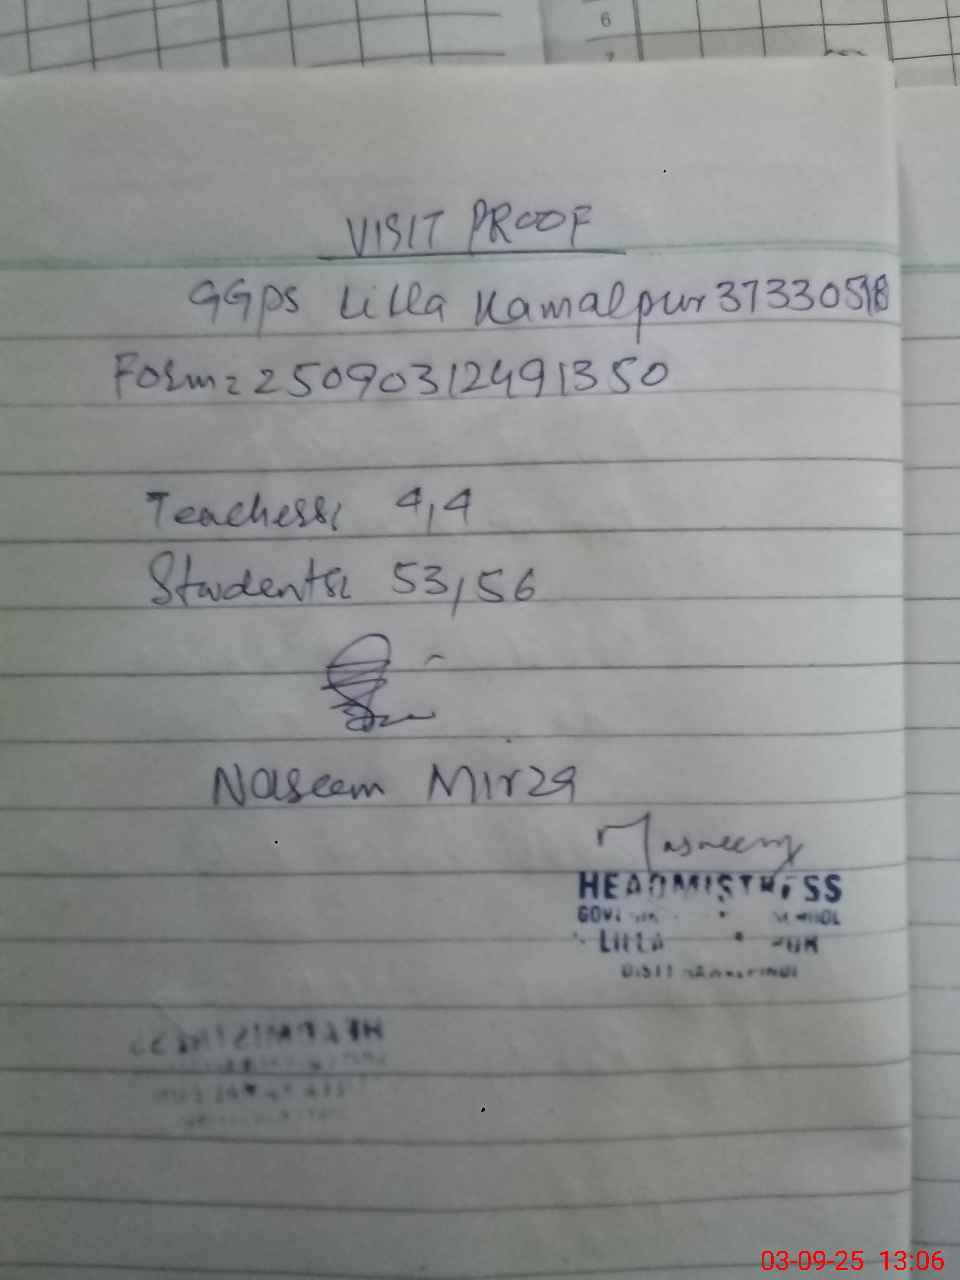 6
VISIT PROOF
GGPS Lilla Kamalpur 37330518
Form: 2509031249 1350
Teachers: 4,4
Students: 53/56
Naseem Mirza
HEADMISTRESS
LILLA
03-09-25 13:06